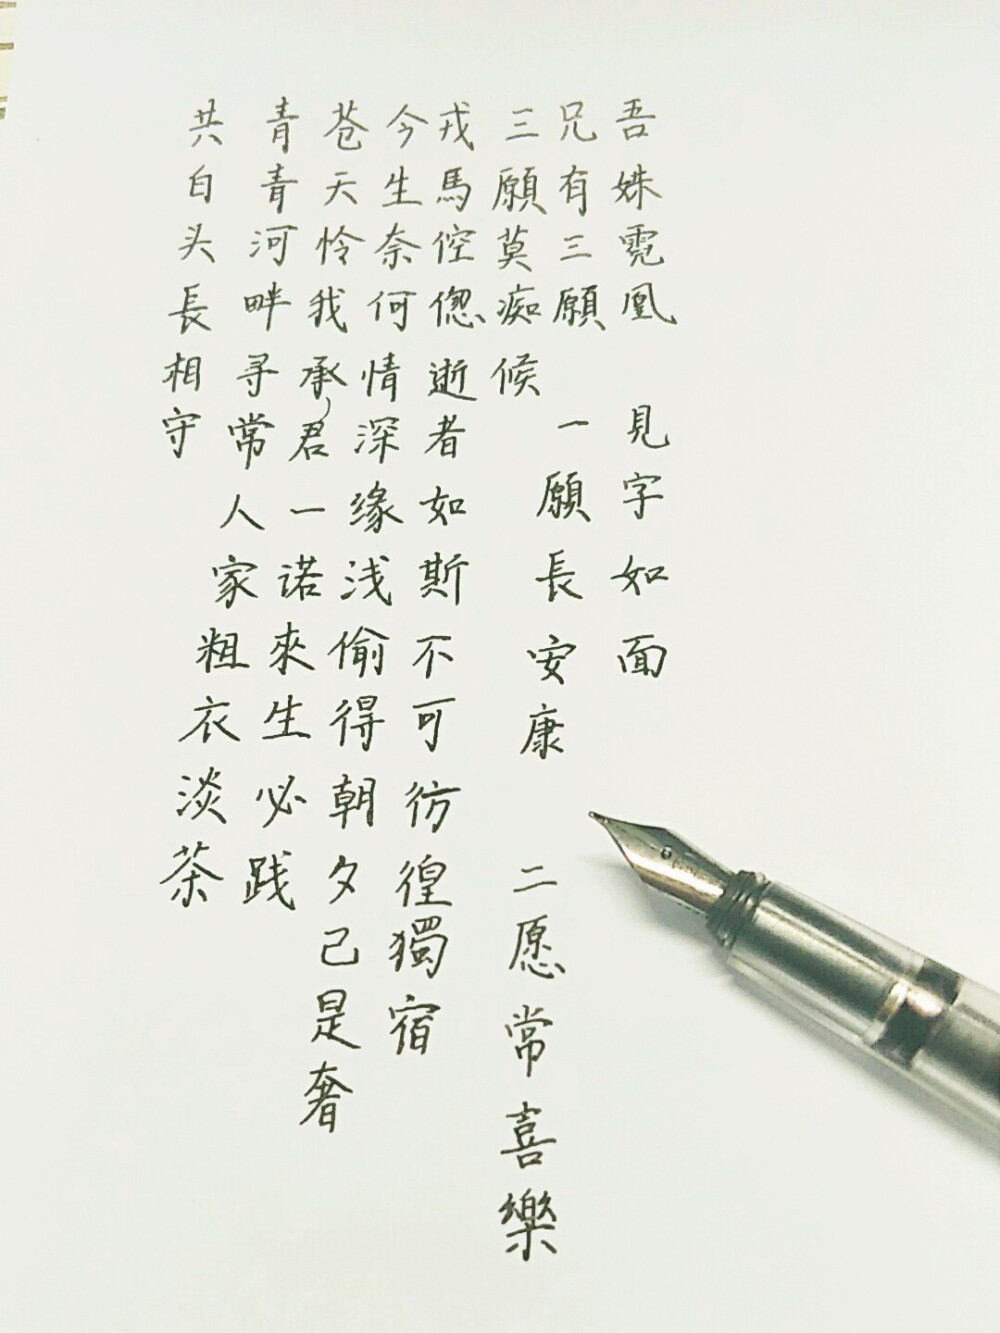 吾姝霓凰 見字如面
兄有三願 一願長安康 二愿常喜樂
三願莫痴候
戎馬倥偬逝者如斯不可彷徨獨宿
今生奈何情深缘浅偷得朝夕己是奢
苍天怜我承君一诺來生必践
青青河畔寻常人家粗衣淡茶
共白头長相守